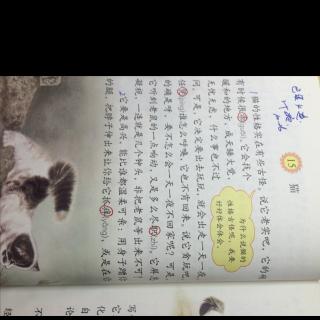 15 猫
猫的性格实在有些古怪。说它老实吧，它的确
有时候很乖(guāi)。它会找个
暖和的地方，成天睡大觉，
无忧无虑，什么事也不过
问。可是，它决定要出去玩玩，就会出走一天一夜，
任凭(píng)谁怎么呼唤，它也不肯回来。说它贪玩吧，
的确是呀，要不怎么会一天一夜不回家呢？可是，
它听到老鼠的一点响动，又是多么尽职(zhí)。它屏息
凝视，一连就是几个钟头，非把老鼠等出来不可！
2它要是高兴，能比谁都温柔可亲：用身子蹭你
的腿，把脖子伸出来让你给它抓痒(yǎng)，或是在
为什么说猫的
性格古怪呢，我要
好好体会体会。